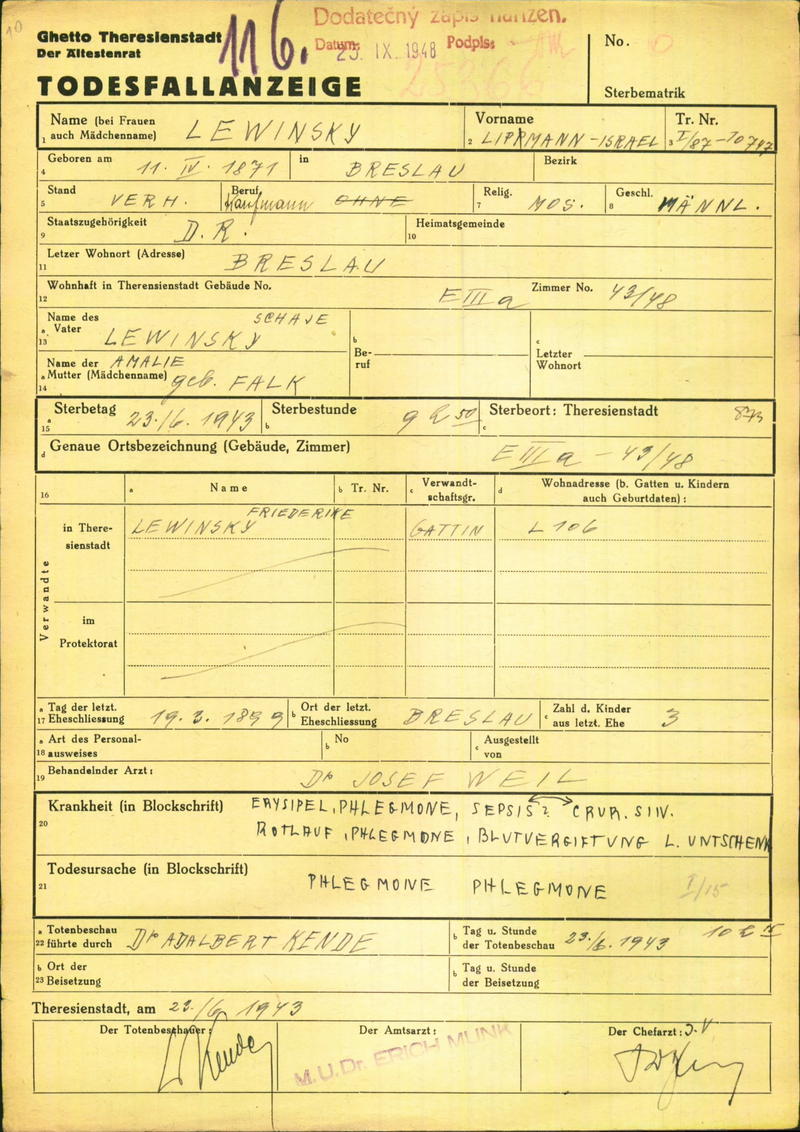 10
Ghetto Theresienstadt
Der Ältestenrat
116.
Dodatečný zápis nařízen.
Datum: 23. IX. 1948 Podpis:
No.
TODESFALLANZEIGE
Sterbematrik
Name (bei Frauen auch Mädchenname) LEWINSKY
1
Vorname
2 LIPPMANN-ISRAEL
Tr. Nr.
3 I/87-10747
Geboren am 11. IV. 1871 in BRESLAU Bezirk
4
Stand VERH. Beruf Kaufmann OHNE Relig. MOS. Geschl. MÄNNL.
5 7 8
Staatszugehörigkeit D.R. Heimatsgemeinde
9 10
Letzer Wohnort (Adresse) BRESLAU
11
Wohnhaft in Therensienstadt Gebäude No. E III a Zimmer No. 43/48
12
Name des SCHAJE
a Vater LEWINSKY
13
b Beruf
c Letzter Wohnort
Name der AMALIE
a Mutter (Mädchenname) geb. FALK
14
a Sterbetag 23./6. 1943 b Sterbestunde 9 h 50 c Sterbeort: Theresienstadt 873
15
d Genaue Ortsbezeichnung (Gebäude, Zimmer) E III a - 43/48
16 a Name b Tr. Nr. c Verwandtschaftsgr. d Wohnadresse (b. Gatten u. Kindern auch Geburtdaten):
Verwandte
in Theresienstadt LEWINSKY FRIEDERIKE GATTIN L 106
im Protektorat
a Tag der letzt. 17 Eheschliessung 19. 3. 1899 b Ort der letzt. Eheschliessung BRESLAU c Zahl d. Kinder aus letzt. Ehe 3
a Art des Personal- 18 ausweises b No c Ausgestellt von
19 Behandelnder Arzt: Dr JOSEF WEIL
Krankheit (in Blockschrift) ERYSIPEL, PHLEGMONE, SEPSIS? CRUR. SIN.
20 ROTLAUF, PHLEGMONE, BLUTVERGIFTUNG L. UNTSCHENK
Todesursache (in Blockschrift)
21 PHLEGMONE PHLEGMONE I/15
a Totenbeschau 22 führte durch Dr ADALBERT KENDE b Tag u. Stunde der Totenbeschau 23./6. 1943 10 h
b Ort der 23 Beisetzung b Tag u. Stunde der Beisetzung
Theresienstadt, am 23./6 1943
Der Totenbeschauer: Der Amtsarzt: Der Chefarzt: I.V
Kende M.U.Dr. ERICH MUNK